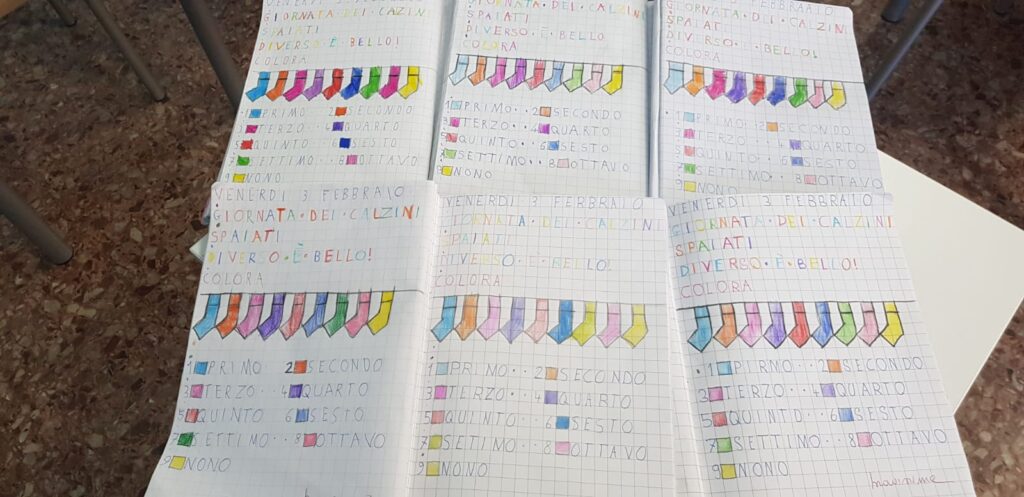 VENERDÌ 3 FEBBRAIO
GIORNATA DEI CALZINI
SPAIATI
DIVERSO È BELLO!
COLORA
1 PRIMO·· 2 SECONDO
3 TERZO·· 4 QUARTO
5 QUINTO·· 6 SESTO
7 SETTIMO·· 8 OTTAVO
9 NONO
GIORNATA·DEI·CALZINI
SPAIATI
DIVERSO·È·BELLO
COLORA
1 PRIMO·· 2 SECONDO
3 TERZO·· 4 QUARTO
5 QUINTO·· 6 SESTO
7 SETTIMO·· 8 OTTAVO
9 NONO
VENERDÌ 3 FEBBRAIO
GIORNATA·DEI·CALZINI
SPAIATI
DIVERSO BELLO!
COLORA
1 PRIMO 2 SECONDO
3 TERZO·· 4 QUARTO
5 QUINTO·· 6 SESTO
7 SETTIMO·· 8 OTTAVO
9 NONO
VENERDÌ 3 FEBBRAIO
GIORNATA·DEI·CALZINI
SPAIATI
DIVERSO·È·BELLO!
COLORA
1 PRIMO 2 SECONDO
3 TERZO·· 4 QUARTO
5 QUINTO 6 SESTO
7 SETTIMO·· 8 OTTAVO
9 NONO
VENERDÌ 3 FEBBRAIO
GIORNATA DEI CALZINI
SPAIATI
DIVERSO È BELLO!
COLORA
1 PRIMO·· 2 SECONDO
3 TERZO·· 4 QUARTO
5 QUINTO·· 6 SESTO
7 SETIMO·· 8 OTTAVO
9 NONO
VENERDÌ 3 FEBBRAIO
GIORNATA·DEI·CALZINI
SPAIATI
DIVERSO·È·BELLO!
COLORA
1 PIRMO·· 2 SECONDO
3 TERZO·· 4 QUARTO
5 QUINTO·· 6 SESTO
7 SETTIMO·· 8 OTTAVO
9 NONO